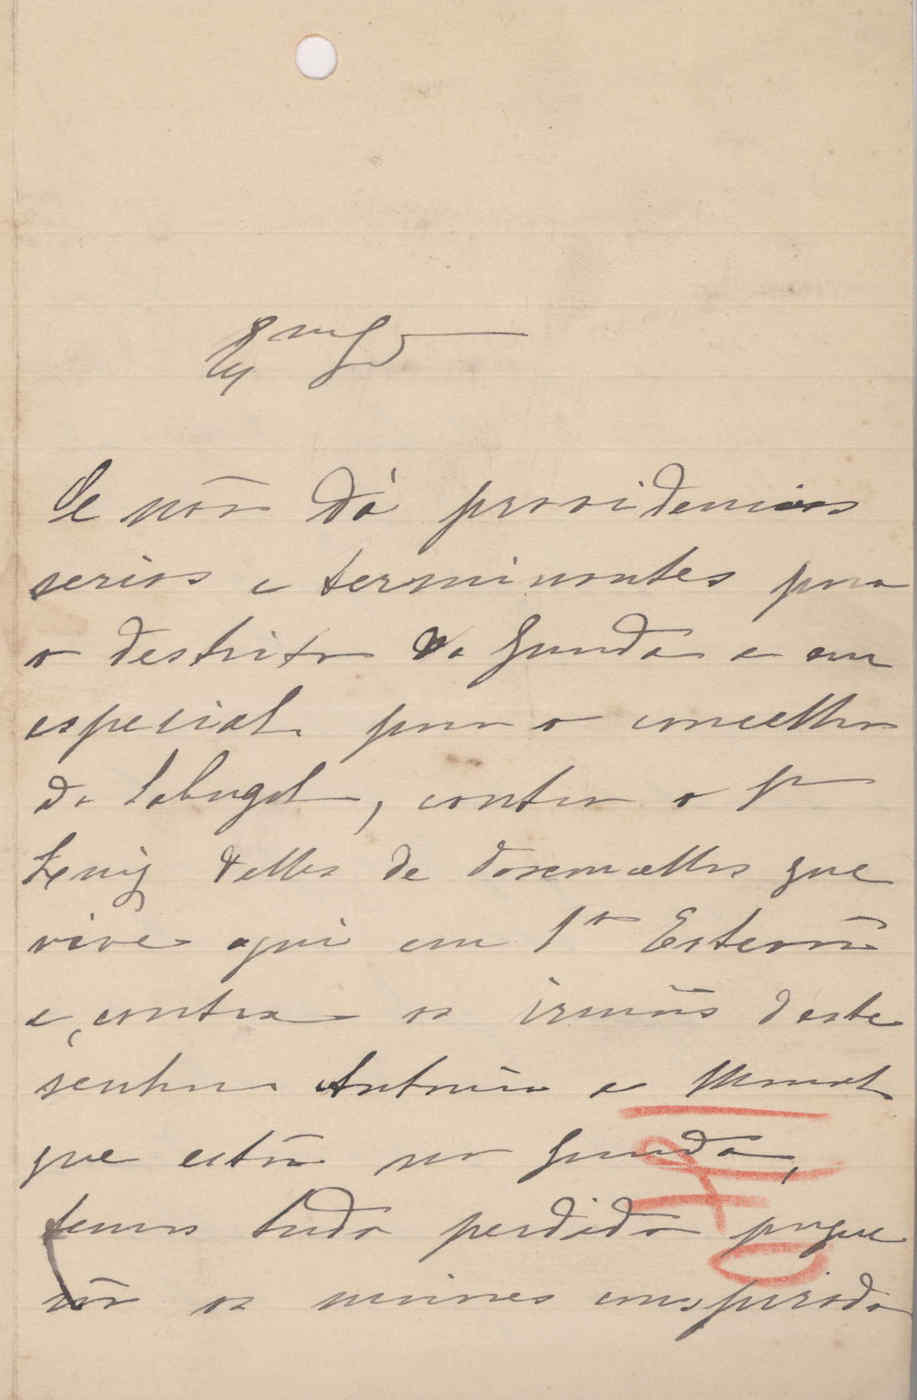 Exmo Sr
Se não dá providencias
serias e terminantes para
o destrito da Guarda e em
especial para o concelho
do Sabugal, contra o Sr
Luiz Telles de Vasconcellos que
vive aqui em Sto Estevão
e contra os irmãos deste
senhor Antonio e Manoel
que estão na Guarda,
temos tudo perdido porque
são os maiores conspirado
1140